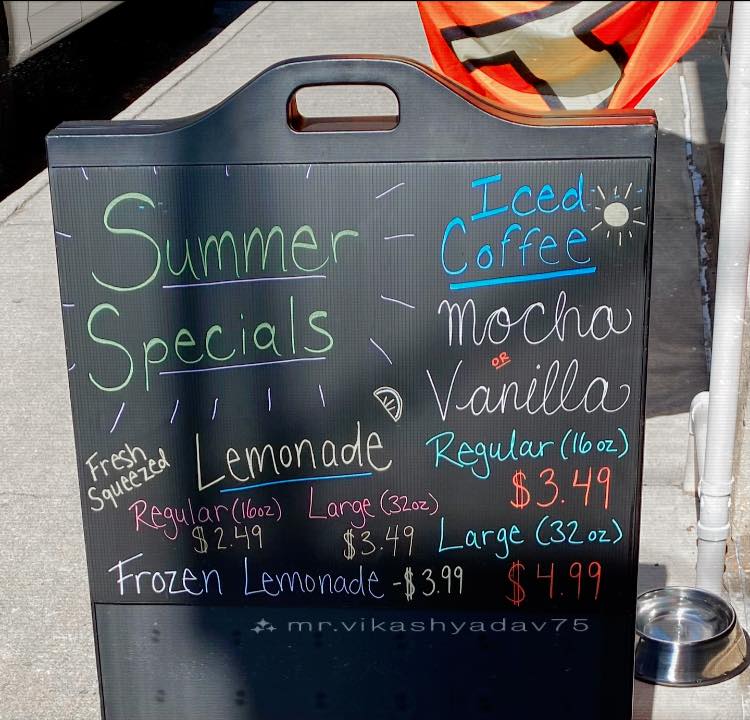 Summer
Specials
Iced
Coffee
Mocha
OR
Vanilla
Regular (16oz)
$3.49
Large (32oz)
$4.99
Fresh
Squeezed
Lemonade
Regular (16oz) Large (32oz)
$2.49 $3.49
Frozen Lemonade - $3.99
mr.vikashyadav75